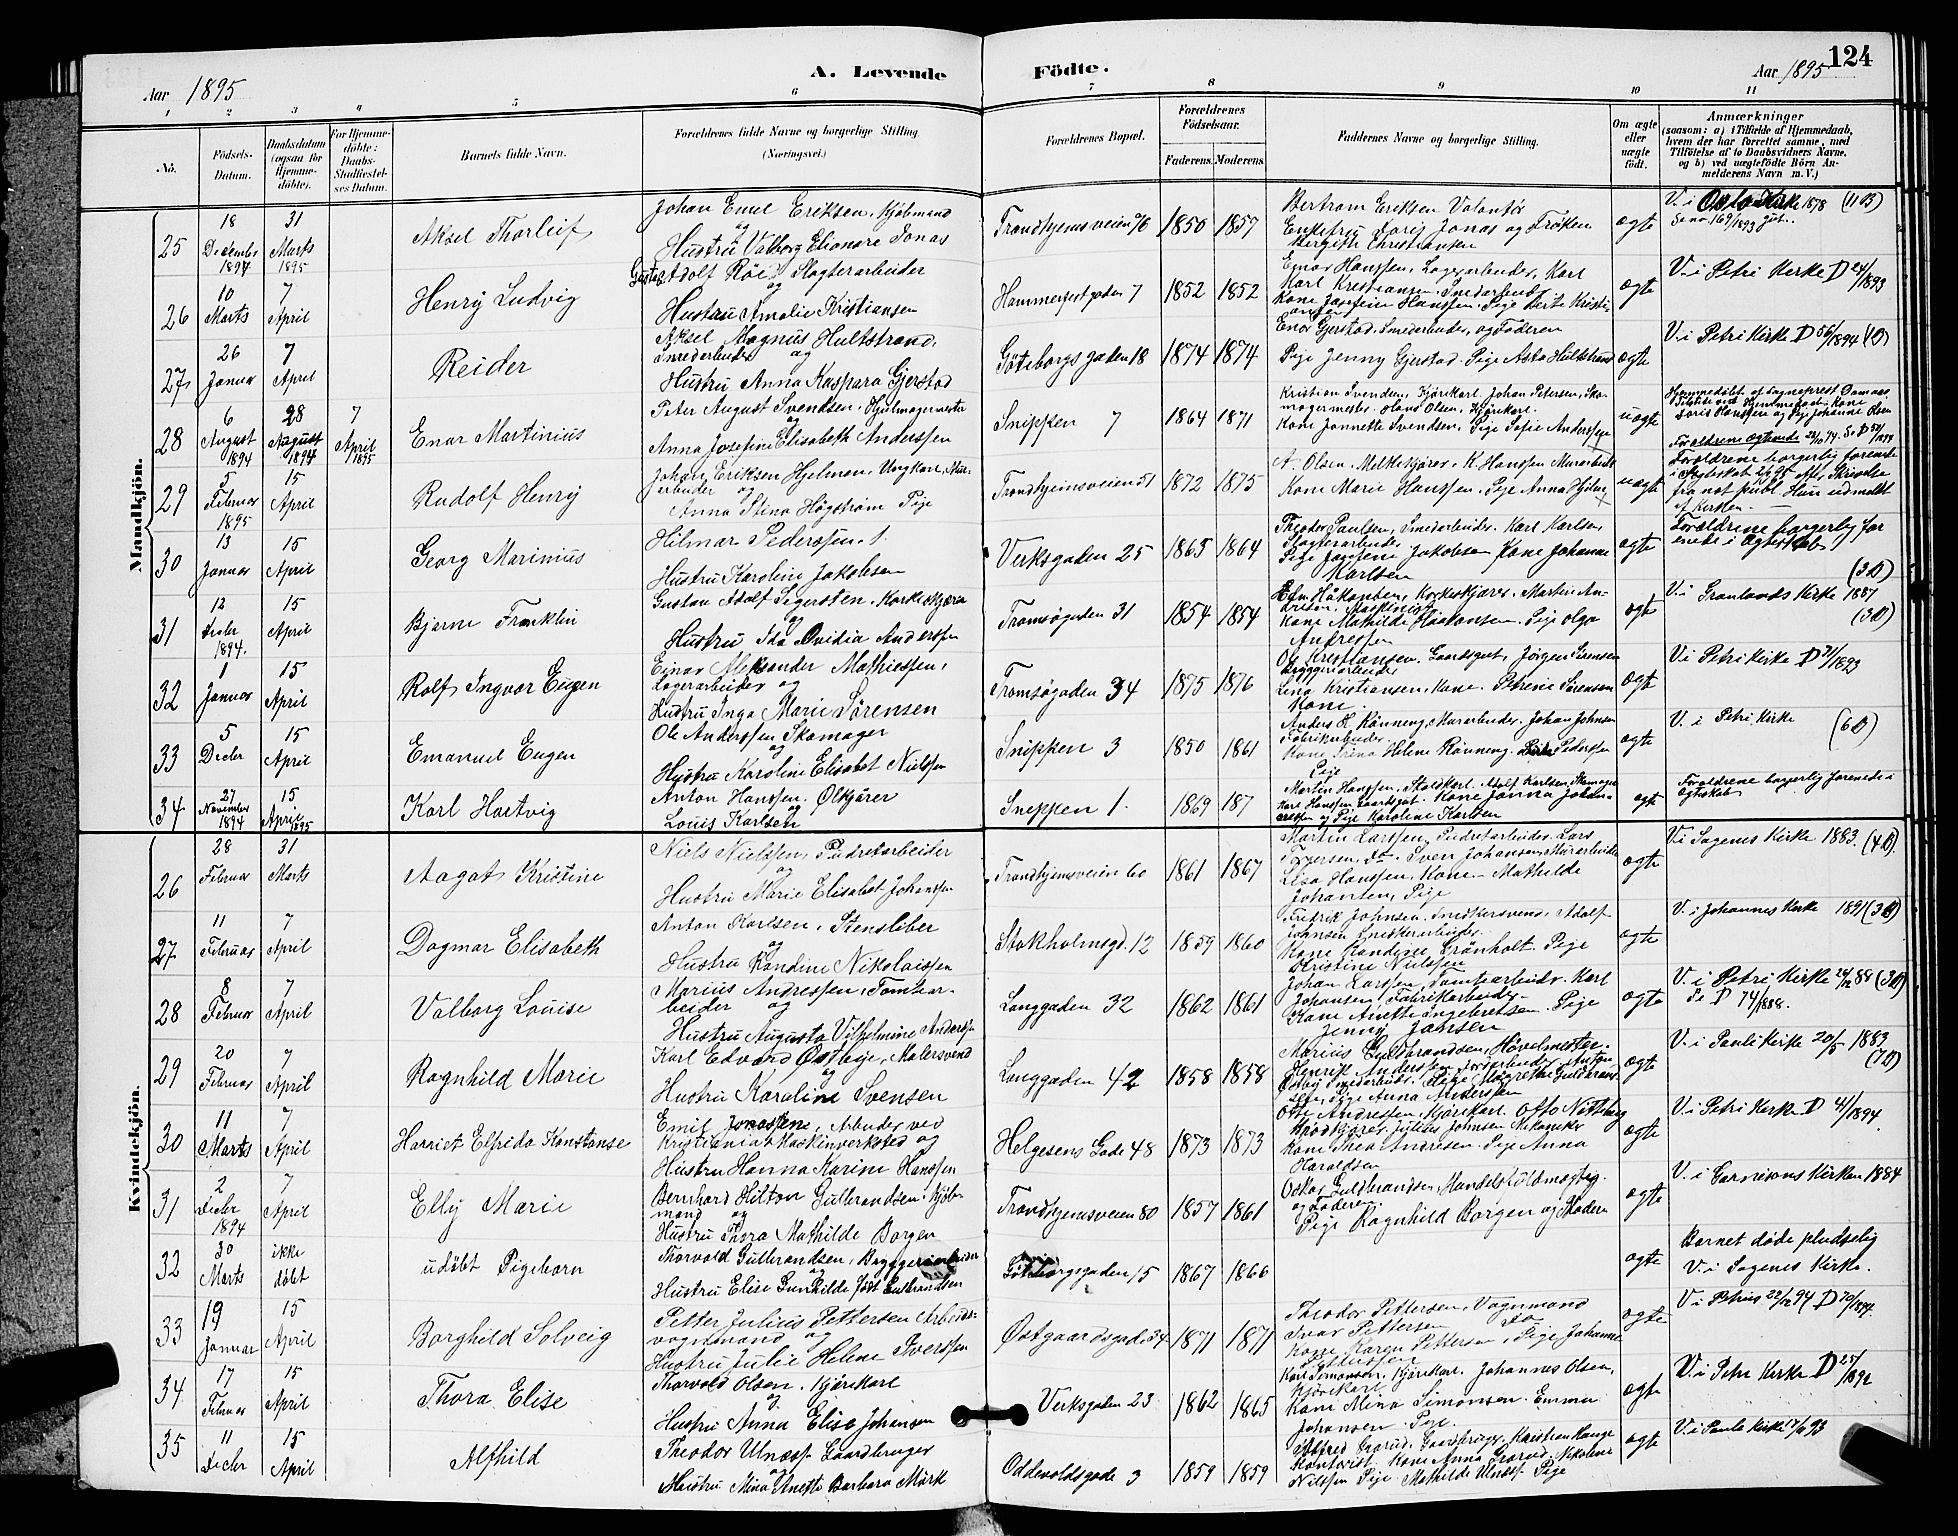 Aar 1895 A. Levende Födte. Aar 1895 124
1 2 3 4 5 6 7 8 9 10 11
No.
Födsels-
Datum.
Daabsdatum
(ogsaa for
Hjemme-
döbte).
For Hjemme-
döbte:
Daabs-
Stadfæstel-
ses Datum.
Barnets fulde Navn.
Forældrenes fulde Navne og borgerlige Stilling.
(Næringsvei.)
Forældrenes Bopæl.
Forældrenes
Födselsaar.
Faderens. Moderens.
Faddernes Navne og borgerlige Stilling.
Om ægte
eller
uægte
födt.
Anmærkninger
(saasom: a) i Tilfælde af Hjemmedaab,
hvem der har forrettet samme, med
Tilföielse af to Daabsvidners Navne,
og b) ved uægtefödte Börn An-
melderens Navn m. V.)
Mandkjön.
25
18
Decembr
1894
31
Marts
1895
Aksel Thorleif
Johan Emil Eriksen, Kjöbmand
og
Hustru Valborg Elionore Jonas
Trondhjemsveien 76 1850 1857
Bertram Eriksen Volontör
Enkefru Doris Jonas og Fröken
Bergith Christiansen
ægte
V. i Oslo Kirke 1878
26
10
Marts
7
April
Henry Ludvig
Gustav Adolf Röe, Slagterarbeider
og
Hustru Amalie Kristiansen
Hammerfestgaden 7 1852 1852
Einar Hanssen, Lagerarbeider, Karl
Karl Kristiansen, Smedarbeider
Kone Josefine Hanssen, Pige Berte Kristi-
ansen
ægte
V. i Petri Kirke D 24/1893
27
26
Januar
7
April
Reider
Aksel Magnus Hultstrand,
Smedarbeider og
Hustru Anna Kaspara Gjerstad
Göteborgs gaden 18 1874 1874
Enor Gjerstad, Smedarbeider, og Faderen
Pige Jenny Gjerstad. Pige Asta Hultstrand
ægte
V. i Petri Kirke D 56/1894 (1D)
28
6
August
1894
28
August
1894
7
April
1895
Enar Martinius
Peter August Svendsen, Hjulmagermester
og
Anna Josefine Elisabeth Anderssen
Snippen 7 1864 1871
Kristian Svendsen, Kjörekarl. Johan Petersen, Sko-
magermester. Hans Olsen, Kjörekarl.
Kone Jannette Svendsen, Pige Sofie Anderssen
uægte
Hjemmedöbt af Sogneprest
Doris Hanssen og Pige Johanne Olsen
29
5
Februar
1895
15
April
Rudolf Henry
Johan Eriksen Hjelmen, Ungkarl, Mur-
arbeider og
Anna Stina Högström Pige
Trondhjemsveien 51 1872 1875
A. Olsen, Melkekjörer, K. Hanssen Murarbeid
Kone Marie Hanssen, Pige Anna Hjelm
uægte
Forældrene borgerlig forenede
af Kirken.
30
13
Januar
15
April
Georg Marinius
Hilmar Pederssen
Hustru Karoline Jakobsen
Verksgaden 25 1865 1864
Theodor Paulsen, Smedarbeider. Karl Karlsen,
Slagterarbeider
Pige Josefine Jakobsen Kone Johanne
Karlsen
ægte
Forældrene borgerlig for
enede i Ægteskab
(3D)
31
12
Decbr
1894.
15
April
Bjarne Franklin
Gustav Adolf Segersten, Korkeskjærer
og
Hustru Ida Ovidia Anderssen
Tromsögaden 31 1854 1854
Edm. Håkansen, Korkeskjærer, Martin An-
dresen, Maskinist
Kone Mathilde Haakansen. Pige Olga
Andressen
ægte
V. i Grønlands Kirke 1887
(3D)
32
1
Januar
15
April
Rolf Ingvar Eugen
Einar Aleksander Mathiessen,
Lagerarbeider og
Hustru Inga Marie Sørensen
Tromsögaden 34 1875 1876
Ole Kristiansen, Gaardsgut, Jörgen Sörensen
Bryggeriarbeider
Lina Kristiansen, Kone. Petrine Sörensen
Kone.
ægte
V. i Petri Kirke D 31/1893
33
5
Decbr
15
April
Emanuel Eugen
Ole Anderssen Skomager
og
Hustru Karoline Elisabet Nielssen
Snippen 3 1850 1861
Anders K Rönning, Murarbeider. Johan Johnsen
Fabrikarbeider
Kone Trina Helene Rönning. Pederssen
Pige
ægte
V. i Petri Kirke (6D)
34
27
November
1894
15
April
1895
Karl Hartvig
Anton Hanssen, Ölkjörer
og
Louis Karlsen
Snippen 1. 1869 187
Martin Hanssen, Staldkarl. Adolf Karlsen, Skomager
Karl Hanssen Gaardsgut. Kone Janna Johan-
nessen og Pige Karoline Karlsen
ægte
Forældrene borgerlig forenede i
Ægteskab
Kvindekjön.
26
28
Februar
31
Marts
Aagot Kristine
Niels Nielssen, Pudretarbeider
og
Hustru Marie Elisabet Johanssen
Trondhjemsveien 60 1861 1867
Martin Larssen, Pudretarbeider Lars
Torgersen, do. Sven Johansen, Murarbeider
Lisa Hanssen, Kone - Mathilde
Johansen, Pige
ægte
V. i Sagenes Kirke 1883. (4D)
27
11
Februar
7
April
Dagmar Elisabeth
Anton Karlsen, Stensliber
og
Hustru Kandine Nikolaissen
Stokholmsgd. 12 1859 1860
Fredrik Johnsen, Snedkersvend, Adolf
Johnsen Snedkerarbeider.
Kone Kandine Grönholt. Pige
Kristine Nielssen
ægte
V. i Johannes Kirke 1891 (3D)
28
8
Februar
7
April
Valborg Louise
Marius Andressen, Tomtear-
beider og
Hustru Augusta Vilhelmine Anderssen
Langgaden 32 1862 1861
Johan Larssen, Tomtearbeider. Karl
Johansen, Fabrikarbeider -
Kone Anette Ingebretsen. Pige
Jenny Jansen
ægte
V. i Petri Kirke 26/12 88 (3D)
Se D 74/1888.
29
20
Februar
7
April
Ragnhild Marie
Karl Edvard Østbye, Malersvend
og
Hustru Karoline Svensen
Langgaden 42 1858 1858
Marius Guldbrandsen, Hövelmester.
Henrik Anderssen, Jordarbeider, Anton
Østby Smedarbeider. Pige Margrethe Guldbrand
sen, Pige Anna Anderssen
ægte
V. i Pauli Kirke 20/5 1883
(7D)
30
11
Marts
7
April
Harriet Elfrida Konstanse
Emil Jonassen, Arbeider ved
Kristiania Maskinverksted og
Hustru Hanna Karine Hanssen
Helgesens Gade 48 1873 1873
Otto Andressen, Kjörekarl. Otto Nettberg
Brödkjörer. Julius Johnsen Mekaniker
Kone Thea Andresen. Pige Anna
Haraldsen
ægte
V. i Petri Kirke D 41/1894.
31
2
Decbr
1894
7
April
Elly Marie
Bernhard Hilton Gulbrandsen, Kjöb-
mand og
Hustru Thora Mathilde Borgen
Trondhjemsveien 80 1857 1861
Oskar Guldbrandsen, Handelsfuldmægtig.
og Faderen.
Pige Ragnhild Borgen og Moderen
ægte
V. i Garnisons Kirken 1884
32
30
Marts
ikke
döbt
udöbt Pigebarn
Thorvald Gulbrandsen, Bryggeriarbeider
og
Hustru Elise Gunhilde født Gulbrandsen
Göteborgsgaden 15 1867 1866
ægte
Barnet döde pludselig
V. i Sagenes Kirke.
33
19
Januar
15
April
Borghild Solveig
Petter Julius Pettersen Arbeids-
vognmand og
Hustru Julie Helene Iverssen
Østgaardsgade 34 1871 1871
Theodor Pettersen, Vognmand
Ivar Pettersen do
Kone Karen Pettersen, Pige Johanne
ægte
V. i Petrus 22/12 94 D 70/1894.
34
17
Februar
15
April
Thora Elise
Thorvald Olsen, Kjörekarl
og
Hustru Anna Elise Johansen
Verksgaden 23 1862 1865
Karl Simonsen, Kjörekarl. Johannes Olsen,
Kjörekarl
Kone Mina Simonsen. Emma
Johansen Pige.
ægte
V. i Petri Kirke D 25/1892
35
11
Decbr
15
April
Alfhild
Theodor Ulness, Gaardbruger
og
Hustru Mina Anette Barbara Mörk
Oddevoldsgade 3 1859 1859
Gaardbruger, Kristian Hauge
Kontorist Kone Anna Nikoline
Nilssen Pige Mathilde Ulness Pige
ægte
V. i Pauls Kirke 17/6 93